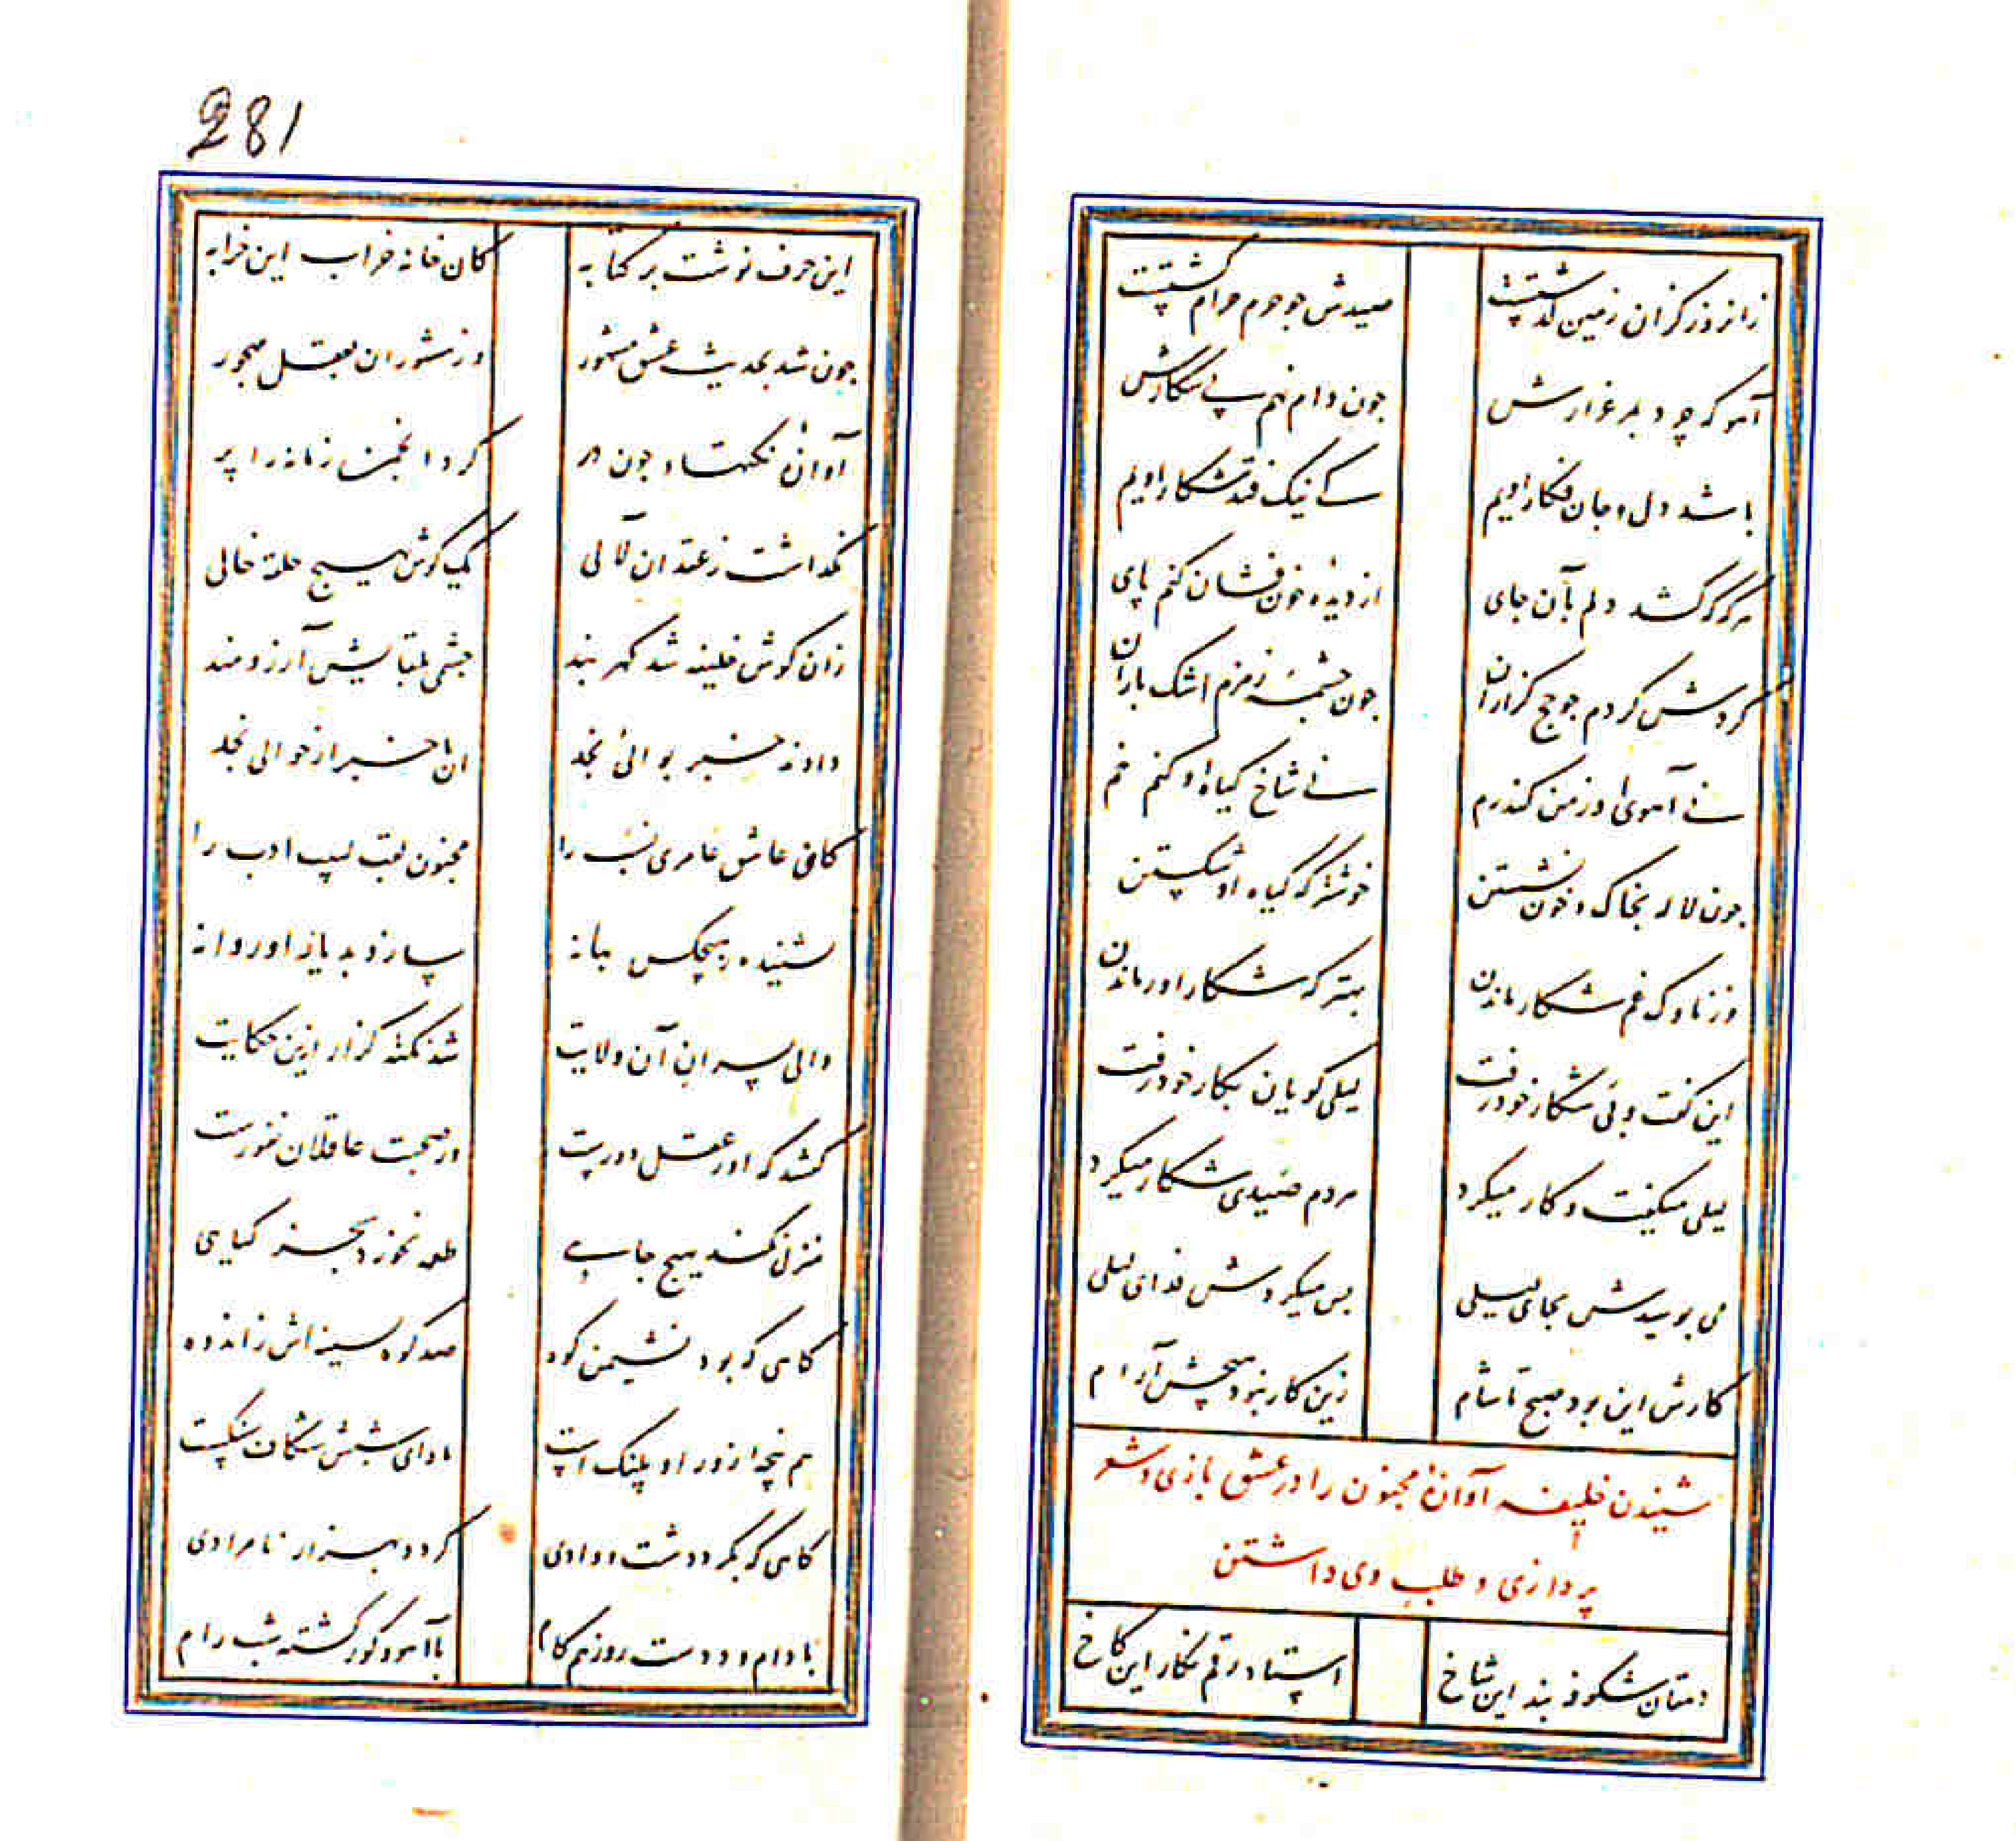 زانروز کزان زمین گذشتست صیدش چو حرم حرام گشتست
آهو که چرد بمرغزارش چون دام نهم پی شکارش
باشد دل و جان فکار اویم کی نیک فتد شکار اویم
هر گه که کشد دلم بآن جای از دیده خون فشان کنم پای
گردش گردم چو حج گزاران چون چشمه زمزم اشک باران
نی آهوی او ز من کند رم نی شاخ گیاه او کنم خم
چون لاله بخاک و خون نشستن خوشتر که گیاه او شکستن
وز ناوک غم شکار ماندن بهتر که شکار او رماندن
این گفت و پی شکار خود رفت لیلی گویان بکار خود رفت
لیلی میگفت و کار میکرد هردم صیدی شکار میکرد
می بوسیدش بجای لیلی پس میکردش فدای لیلی
کارش این بود صبح تا شام زین کار نبود هیچش آرام
شنیدن خلیفه آوازه مجنون را در عشق بازی و شعر
پردازی و طلب وی داشتن
دهقان شکوفه بند این شاخ استاد رقم نگار این کاخ
281
این حرف نوشت بر کتابه کان خانه خراب این خرابه
چون شد بحدیث عشق مشهور وز مشوران بعقل مهجور
آوازه نکتهاء چون در کرد انجمن زمانه را پر
نگذاشت ز عقد آن لآلی یک گوش هیچ حلقه خالی
زان گوش خلیفه شد گهر بند چشمی بلقایش آرزومند
دادند خبر بوالئ نجد ان با خبر از حوالی نجد
کان عاشق عامری نسب را مجنون لقب لبیب ادب را
نشنیده ز هیچکس بهانه سازد بدیار او روانه
والی پسران آن ولایت شد نکته گزار این حکایت
گفتند که او ز عقل دورست در صحبت عاقلان نفورست
منزل نکند بهیچ جایی طعمه نخورد بجز گیاهی
گاهی که بود نشیمن کوه صد کوه بسینه اش ز اندوه
هم پنجه ازور او پلنگ است ماوای شبش شکاف سنگست
گاهی که بگردد دشت و وادی گردد بهزار نامرادی
با دام و دد است روز همکام با آهو و گور گشته شب رام